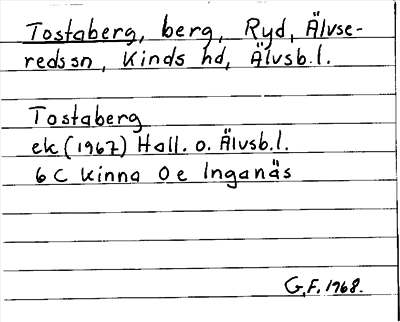 Tostaberg, berg, Ryd, Älvse-
redssn, Kinds hd, Älvsb.l.
Tostaberg
ek (1967) Hall. o. Älvsb.l.
6 C Kinna 0 e Inganäs
G.F. 1968.